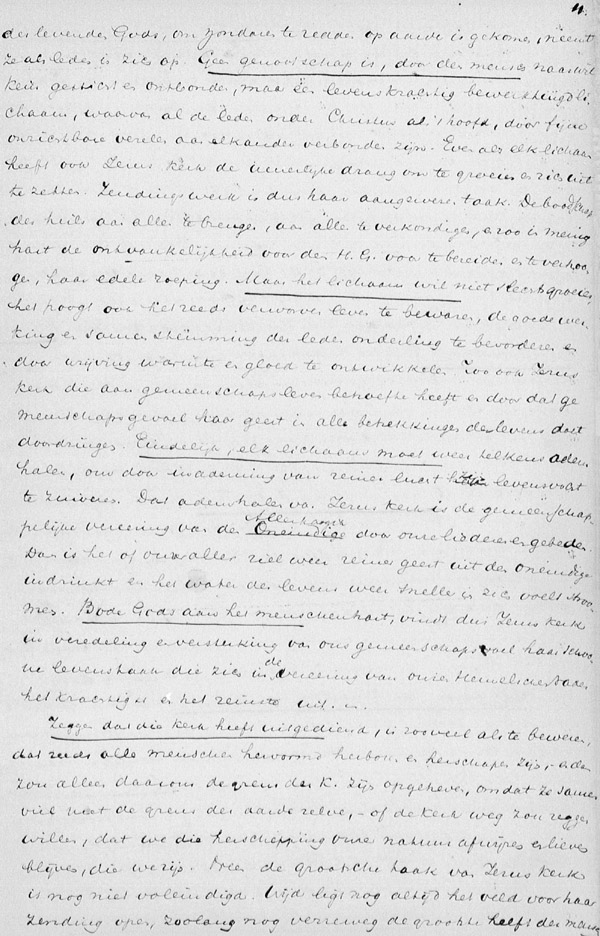 4.
des levenden Gods, om zondaren te redden op aarde is gekomen, neemt
ze als leden in zich op. Geen genootschap is, door der menschen naar wil
keur gesticht en ontbonden, maar een levenskrachtig bewerktuigd li
chaam, waarvan al de leden onder Christus als 't hoofd, door fijne
onzichtbare vezelen aan elkander verbonden zijn. Even als elk lichaam
heeft ook Jezus kerk de innerlijke drang om te groeien en zich uit
te zetten. Zendingswerk is dus haar aangewezen taak. De boodschap
des heils aan allen te brengen, aan allen te verkondigen, en zoo in menig
hart de ontvankelijkheid voor den H. G. voor te bereiden en te verhoo
gen, haar edele roeping. Maar het lichaam wil niet slechts groeien
het poogt ook het reeds verworven leven te bewaren, de goede wer
king en samenstemming der leden onderling te bevorderen en
door wrijving warmte en gloed te ontwikkelen. Zoo ook Jezus
kerk die aan gemeenschapsleven behoefte heeft en door dat ge
meenschapsgevoel haar geest in alle betrekkingen des levens doet
doordringen. Eindelijk, elk lichaam moet weer telkens adem
halen, om door inademing van reiner lucht levensvocht
te zuiveren. Dat ademhalen van Jezus kerk is de gemeenschap
pelijke vereering van den Allerhoogste Oneindige door onze liederen en gebeden.
Dan is het of onze aller ziel weer reiner geest uit den oneindige
indrinkt en het water des levens weer sneller in zich voelt stroo
men. Bode Gods aan het menschenhart, vindt dus Jezus kerk
in veredeling en versterking van ons gemeenschapsgevoel haar schoo
ne levenstaak die zich in de vereering van onzen Hemelschen Vader
het krachtigst en het reinste uit.
Zeggen dat die kerk heeft uitgediend, is zooveel als te beweren,
dat reeds alle menschen hervormd herboren en herschapen zijn, - en dan
zou alleen daarom de grens der K. zijn opgeheven, omdat ze samen
viel met de grens der aarde zelve, - of de kerk weg zou zeggen
willen, dat we die herschepping onzer natuur afwijzen en liever
blijven, die we zijn. Neen de grootsche taak van Jezus kerk
is nog niet voleindigd. Wijd ligt nog altijd het veld voor haar
zending open, zoolang nog verreweg de grootste helft der mensch